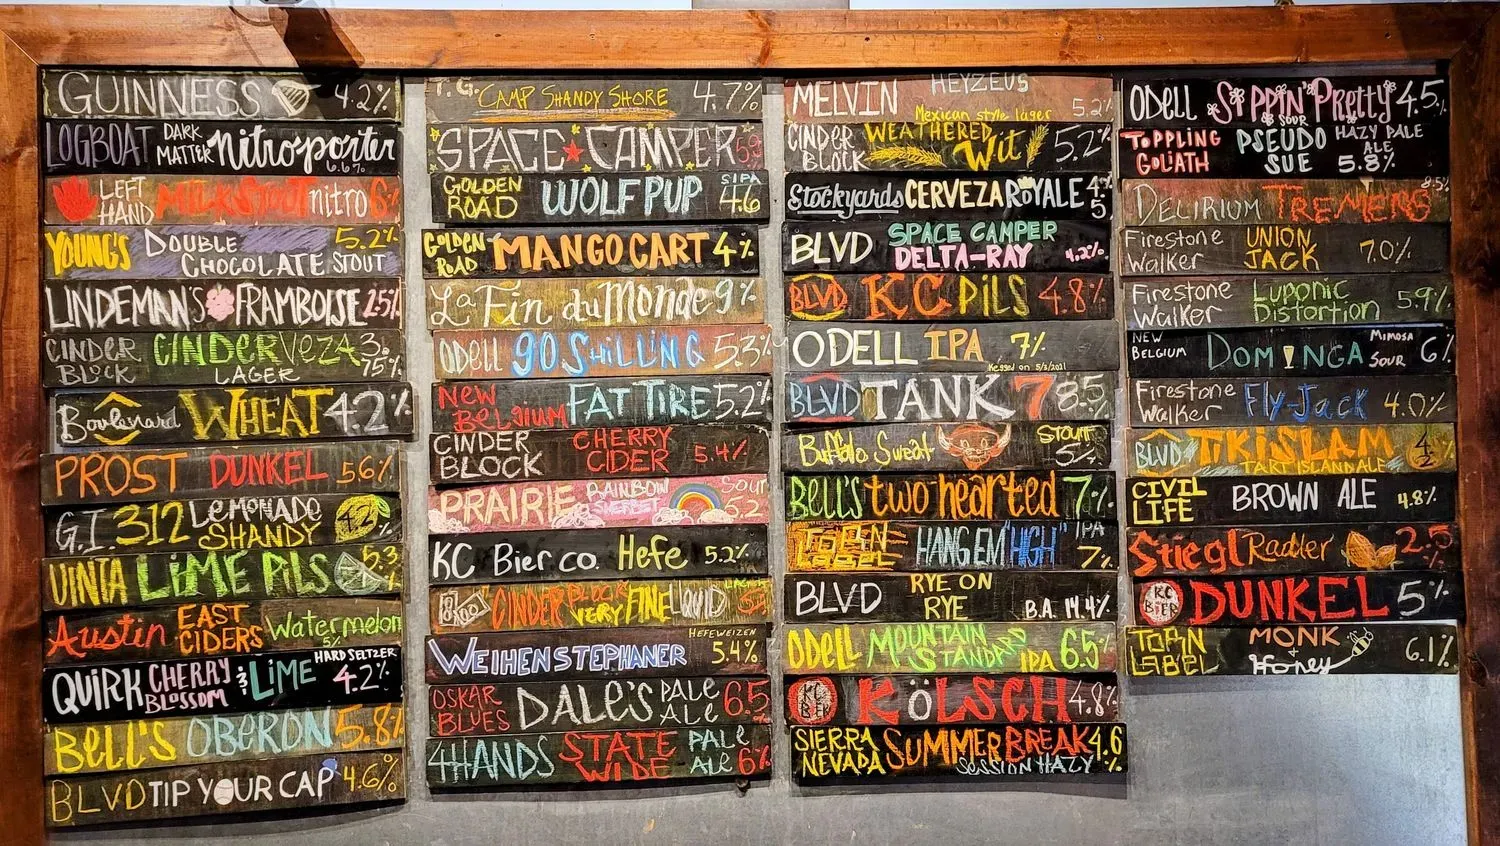 GUINNESS 4.2%
LOGBOAT DARK MATTER nitro-porter 6.6%
LEFT HAND MILK STOUT nitro 6%
YOUNG'S DOUBLE CHOCOLATE STOUT 5.2%
LINDEMAN'S FRAMBOISE 2.5%
CINDER BLOCK CINDERVEZA LAGER 3.75%
Boulevard WHEAT 4.2%
PROST DUNKEL 5.6%
G.I. 312 LEMONADE SHANDY 4.2
UINTA LIME PILS 5.3%
Austin EAST CIDERS Watermelon 5%
QUIRK CHERRY BLOSSOM & LIME HARD SELTZER 4.2%
BELL'S OBERON 5.8%
BLVD TIP YOUR CAP 4.6%
T.G. CAMP SHANDY SHORE 4.7%
SPACE CAMPER 5.9
GOLDEN ROAD WOLF PUP S IPA 4.6
GOLDEN ROAD MANGO CART 4%
La Fin du Monde 9%
ODELL 90 SHILLING 5.3%
NEW BELGIUM FAT TIRE 5.2%
CINDER BLOCK CHERRY CIDER 5.4%
PRAIRIE RAINBOW SHERBET SOUR 5.2
KC Bier co. Hefe 5.2%
CINDER BLOCK VERY FINE LIQUID
WEIHENSTEPHANER HEFEWEIZEN 5.4%
OSKAR BLUES DALE'S PALE ALE 6.5
4HANDS STATE WIDE PALE ALE 6%
MELVIN HEYZEUS Mexican style lager 5.2%
CINDER BLOCK WEATHERED Wit 5.2%
Stockyards CERVEZA ROYALE 4.5%
BLVD SPACE CAMPER DELTA-RAY 4.2%
BLVD KC PILS 4.8%
ODELL IPA 7% Kegged on 5/3/2021
BLVD TANK 7 8.5%
Buffalo Sweat STOUT 5%
BELL'S two hearted 7%
TORN LABEL HANG EM "HIGH" IPA 7%
BLVD RYE ON RYE B.A. 14.4%
ODELL MOUNTAIN STANDARD IPA 6.5%
KC BIER KÖLSCH 4.8%
SIERRA NEVADA SUMMER BREAK SESSION HAZY 4.6%
ODELL SIPPIN' PRETTY SOUR 4.5%
TOPPLING GOLIATH PSEUDO SUE HAZY PALE ALE 5.8%
DELIRIUM TREMENS 8.5%
Firestone Walker UNION JACK 7.0%
Firestone Walker Luponic Distortion 5.9%
NEW BELGIUM DOMINGA MIMOSA SOUR 6%
Firestone Walker Fly-Jack 4.0%
BLVD TIKI SLAM TART ISLAND ALE 4.2
CIVIL LIFE BROWN ALE 4.8%
Stiegl Radler 2.5%
KC BIER DUNKEL 5%
TORN LABEL MONK + Honey 6.1%